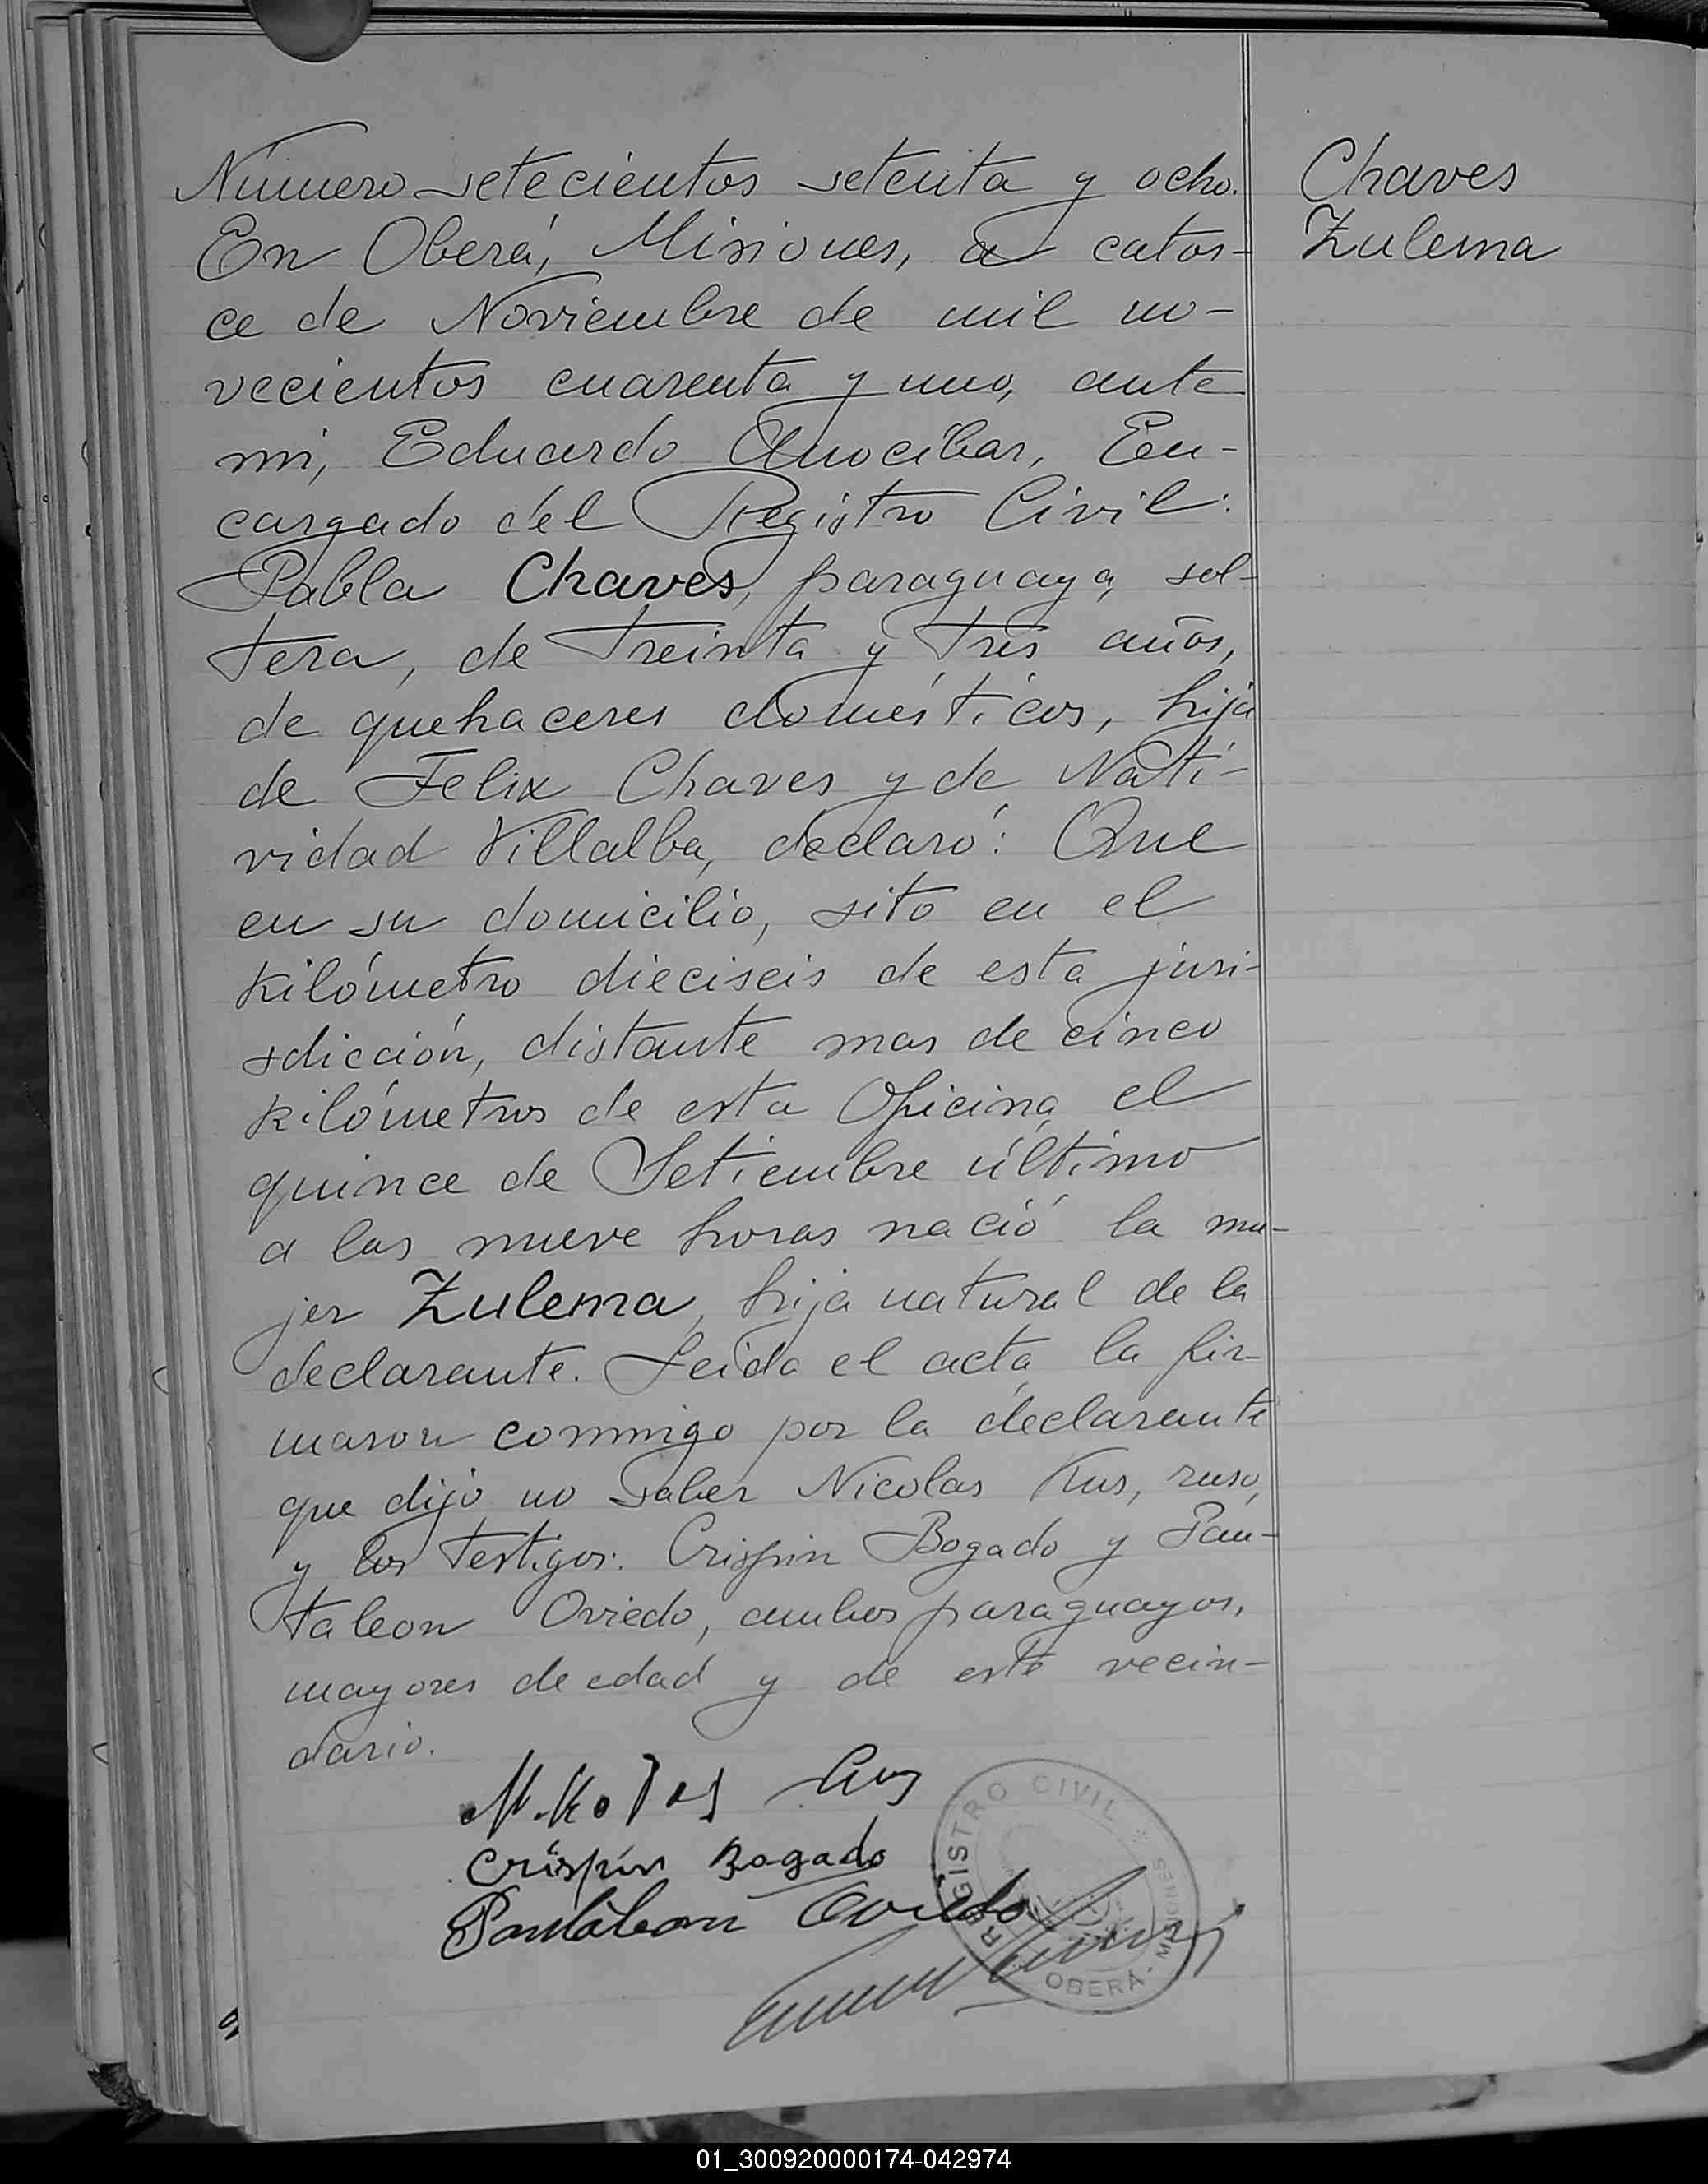 Número setecientos setenta y ocho.
En Oberá, Misiones, a cator-
ce de Noviembre de mil no-
vecientos cuarenta y uno, ante
mi, Eduardo Amocibar, En-
cargado del Registro Civil:
Pabla Chaves, paraguaya, sol-
tera, de treinta y tres años,
de quehaceres domésticos, hija
de Felix Chaves y de Nati-
vidad Villalba, declaró: Que
en su domicilio, sito en el
kilómetro dieciseis de esta juri-
sdicción, distante mas de cinco
kilómetros de esta Oficina, el
quince de Setiembre último
a las nueve horas nació la mu-
jer Zulema, hija natural de la
declarante. Leida el acta, la fir-
maron conmigo por la declarante
que dijo no saber Nicolas Kus, ruso,
y los testigos: Crispin Bogado y Pan-
taleon Oviedo, ambos paraguayos,
mayores de edad y de este vecin-
dario.
Chaves
Zulema
Crispin Bogado
Pantaleon Oviedo
REGISTRO CIVIL
OBERÁ - MISIONES
01_300920000174-042974